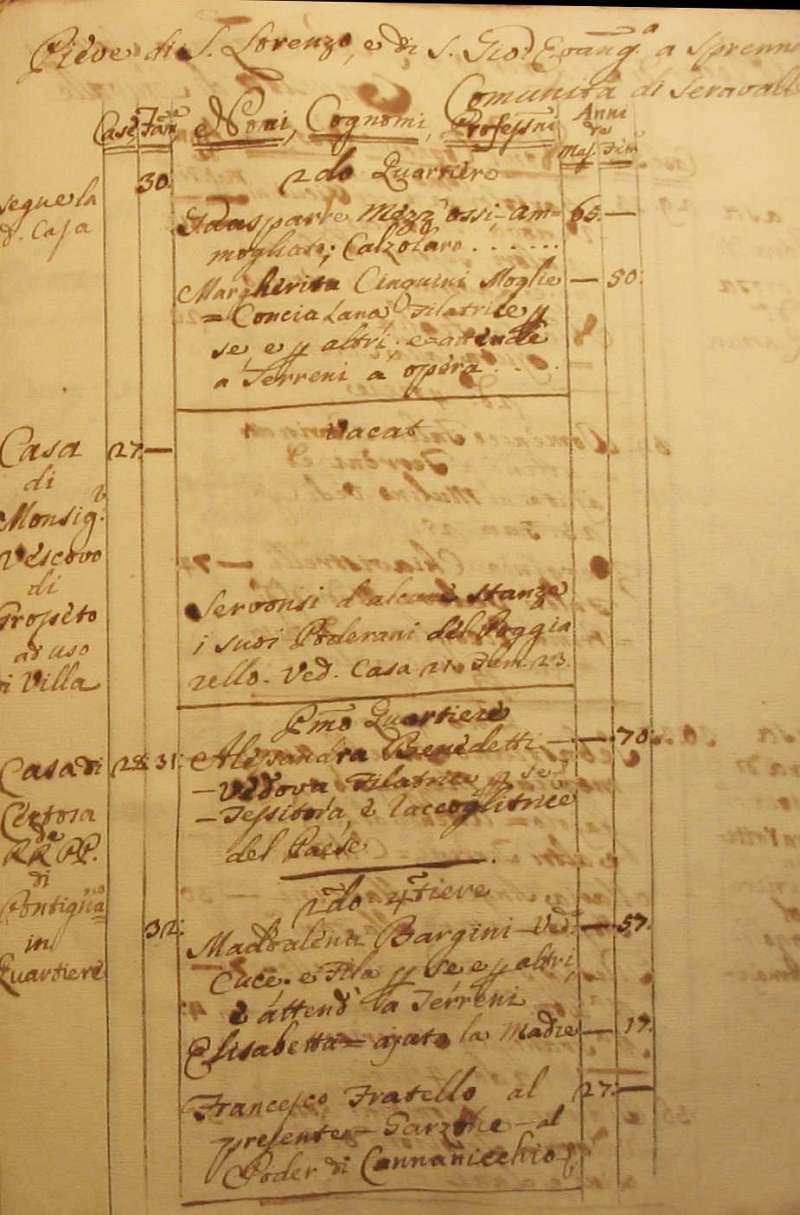 Pieve di S. Lorenzo, e di S. Gio: Evang.a a Sprenna
Comunità di Seraval
Case Fam.e Nomi, Cognomi, Professni Anni
Mas. Fem.
30. 2do Quartiere
segue la
d. Casa
Gdasparre Mezz'ossi - am= 65. —
mogliato; Calzolaro . . . . . .
Margherita Cinquini Moglie — 50.
= Concia Lana Filatrice p
se, e p altri; e attende
a Terreni a opera . . .
Casa 27. — vacat
di
Monsig.r
Vescovo
di
Grosseto
ad uso
di Villa
Servonsi d'alcune stanze
i suoi Poderani del Poggia
rello. Ved. Casa 21. Fam. 23.
Pmo Quartiere
Casa di 28. 31. Alessandra Benedetti — — 70.
Certosa
de
RR. PP.
di
Pontigna
in
Quartiere
— Vedova Filatrice p se
— Tessitora, e Raccoglitrice
del Paese
2do 4tiere
32. Maddalena Bargini Ved. — 57.
Cuce, e Fila p se e p altri,
e attend' a Terreni
Elisabetta = ajuta la Madre — 17.
Francesco Fratello al 27. —
presente — Garzone — al
Poder di Cannanicchio